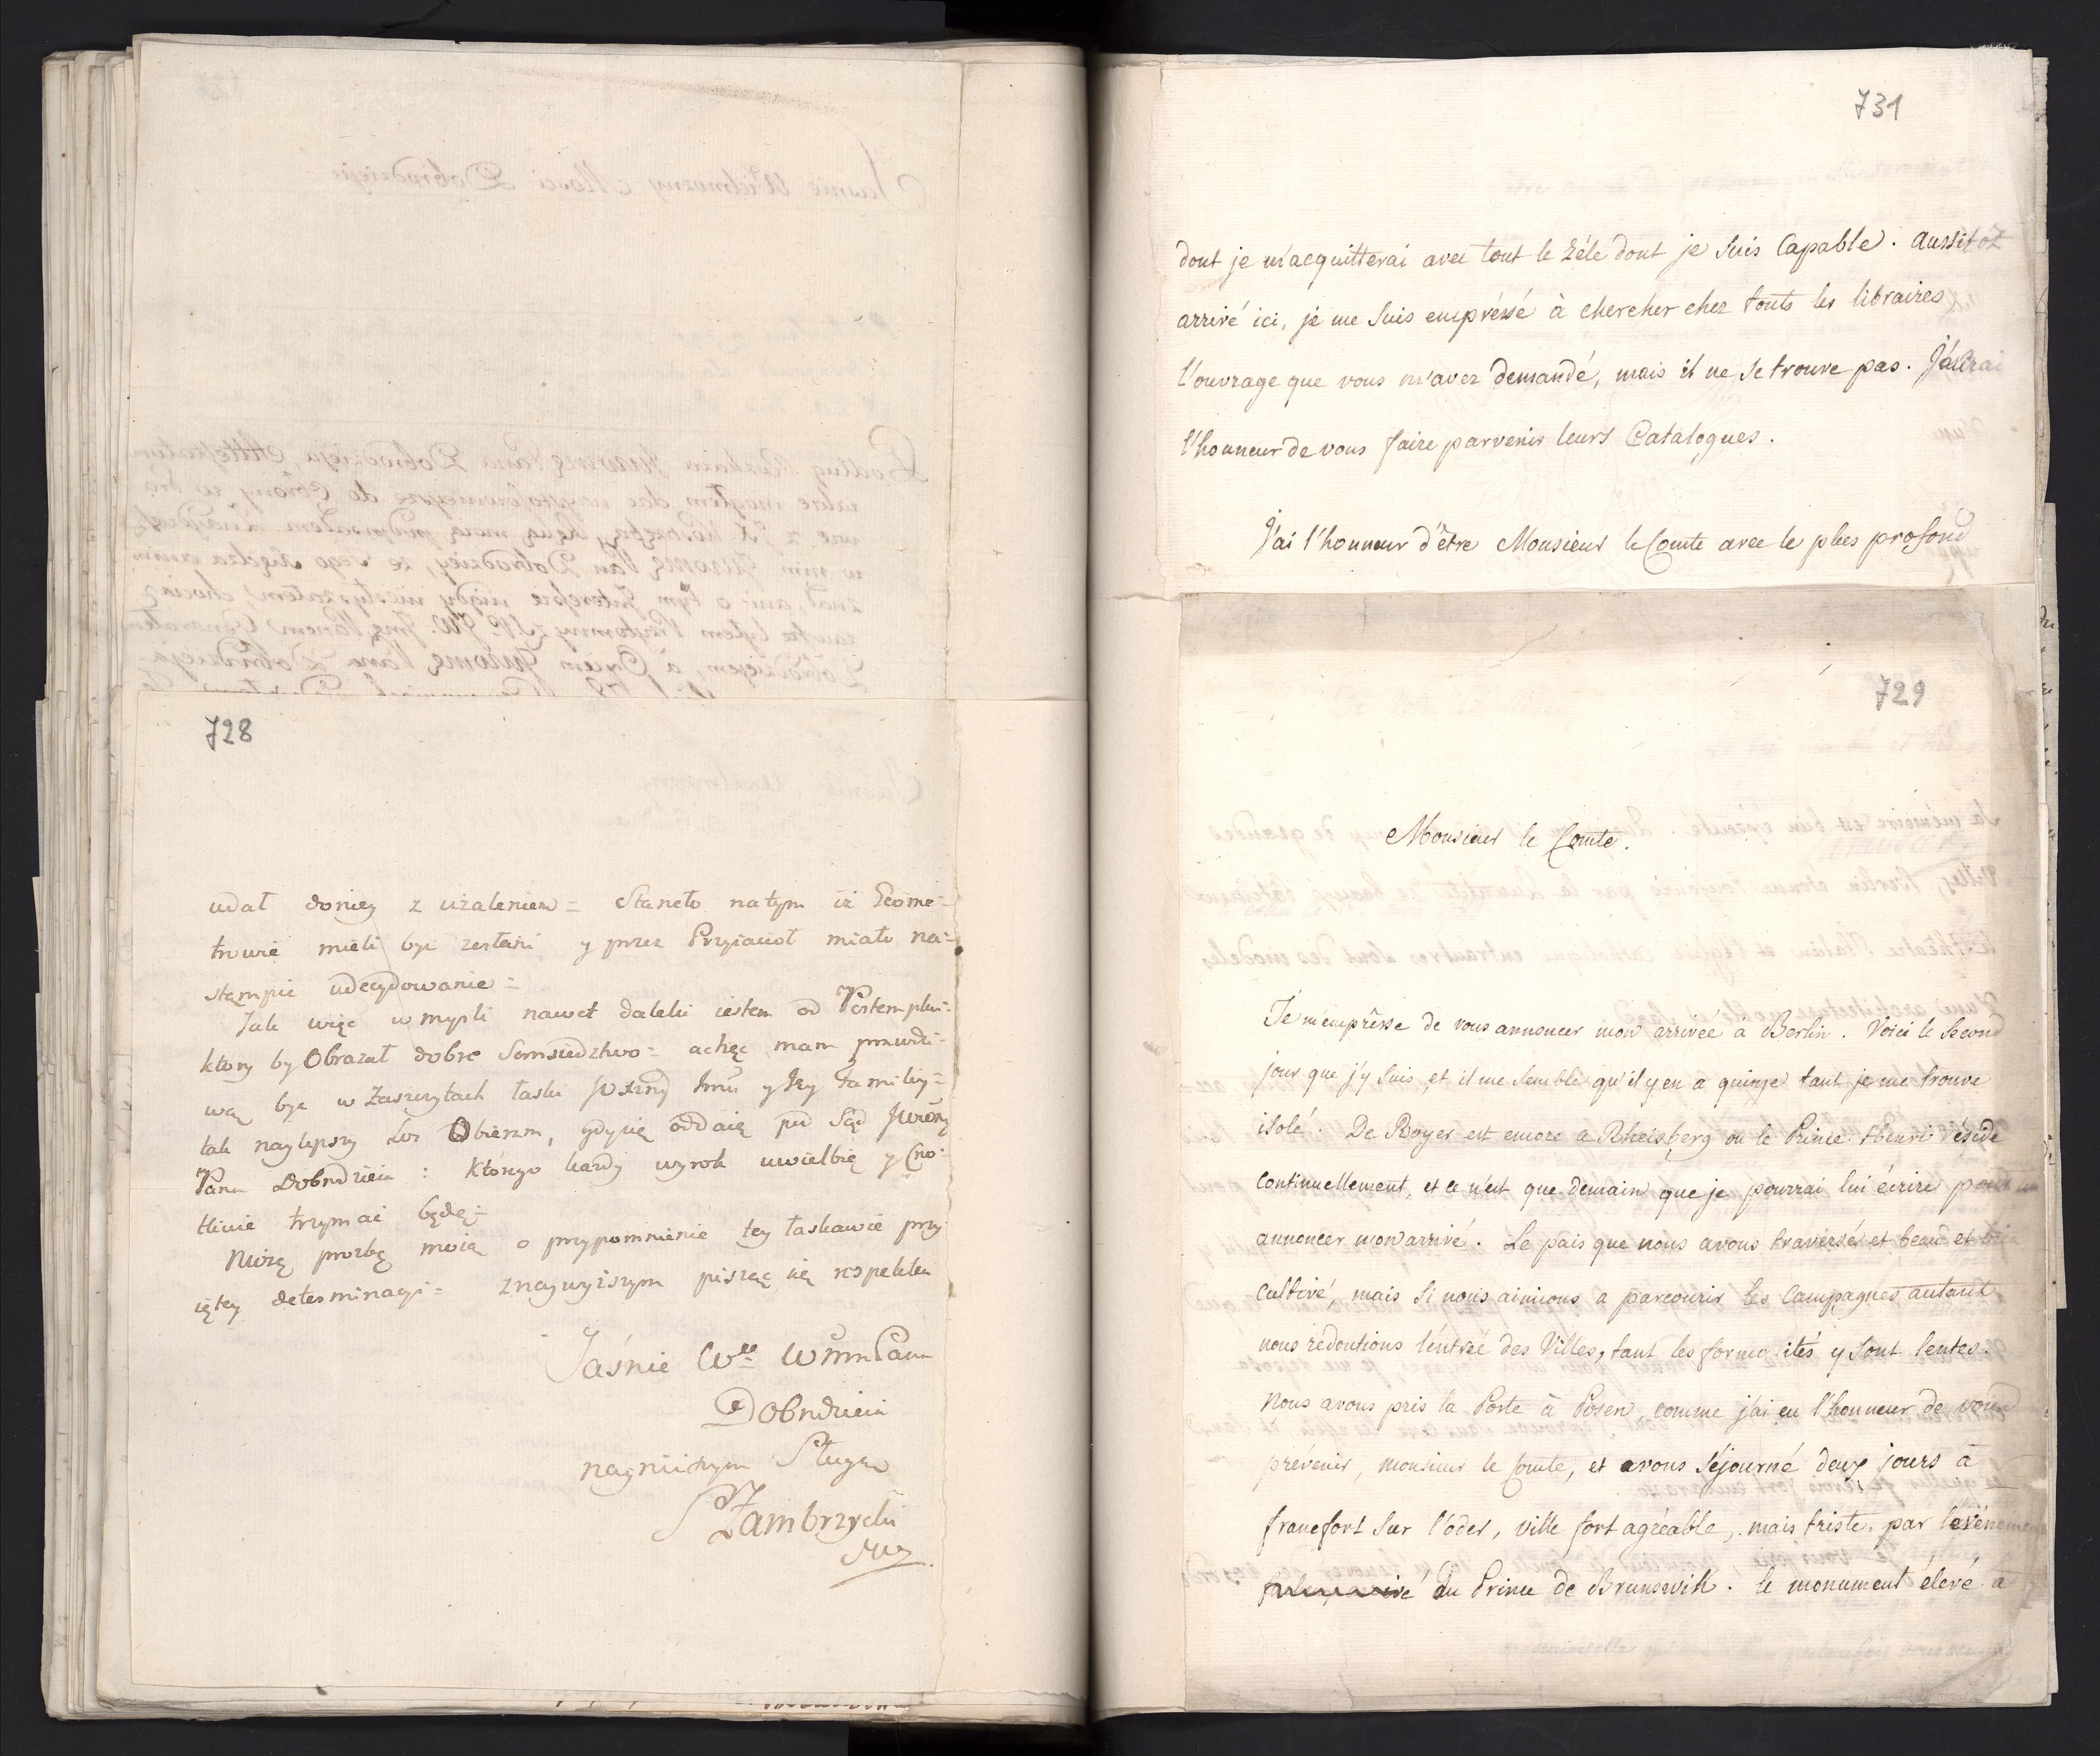 728
udał doniey z użaleniem = Staneło natym iż Geome=
trowie mieli być zesłani y przez Przyiacioł miało na=
stąmpić udecydowanie =
Jak więc w mysli nawet daleki iestem od
ktory by Obrazał dobre Somsiedztwo = achęć mam prawdzi=
wą być w Zaszczytach łaski y Jey Familiy=
tak naylepszy Obieram, gdysię oddaię pod Sąd
Pana Dobrodzieia : którego każdy wyrok uwielbię y Cno=
tliwie trzymać będę =
Niosę prozbę moią o przypomnienie tey łaskawie przy
iętey determinacyi = znaywyższym pisząc się respektem
Jaśnie W WMM Pana
Dobrodzieia
nayniższym Sługą
Zambrzycki
731
dont je m'acquitterai avec tout le zéle dont je suis Capable. Aussitôt
arrivé ici, je me suis empréssé à chercher chez touts les libraires
l'ouvrage que vous m'avez demandé, mais il ne se trouve pas. J'aurai
l'honneur de vous faire parvenir leurs Catalogues.
J'ai l'honneur d'être Monsieur le Comte avec le plus profond
729
Monsieur le Comte.
Je m'emprêsse de vous annoncer mon arrivée à Berlin. Voici le Second
jour que j'y suis, et il me semble qu'il y en a quinze tant je me trouve
isolé. De Royer est encore a Rheisberg ou le Prince Henri réside
Continuellement, et ce n'est que demain que je pourrai lui écrire pour
annoncer mon arrivé. Le païs que nous avons traversés et beau et
cultivé, mais si nous aimions a parcourir les Campagnes autant
nous redoutions l'éntrée des Villes, tant les formalités y sont lentes.
Nous avons pris la Poste à Posen, comme j'ai eu l'honneur de vous
prévenir, monsieur le Comte, et avons séjourné deux jours à
francfort Sur l'oder, ville fort agréable, mais triste par l'evénement
du Prince de Brunswik. le monument élevé a